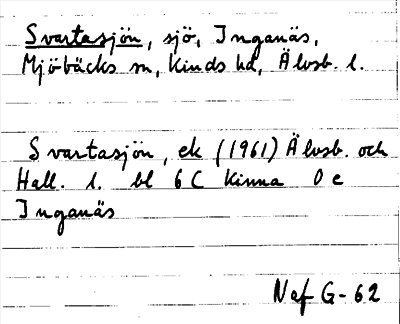 Svartasjön, sjö, Inganäs,
Mjöbäcks sn, Kinds hd, Älvsb. l.
Svartasjön, ek (1961) Älvsb. och
Hall. l. bl 6 C Kinna 0 e
Inganäs
Naf G-62